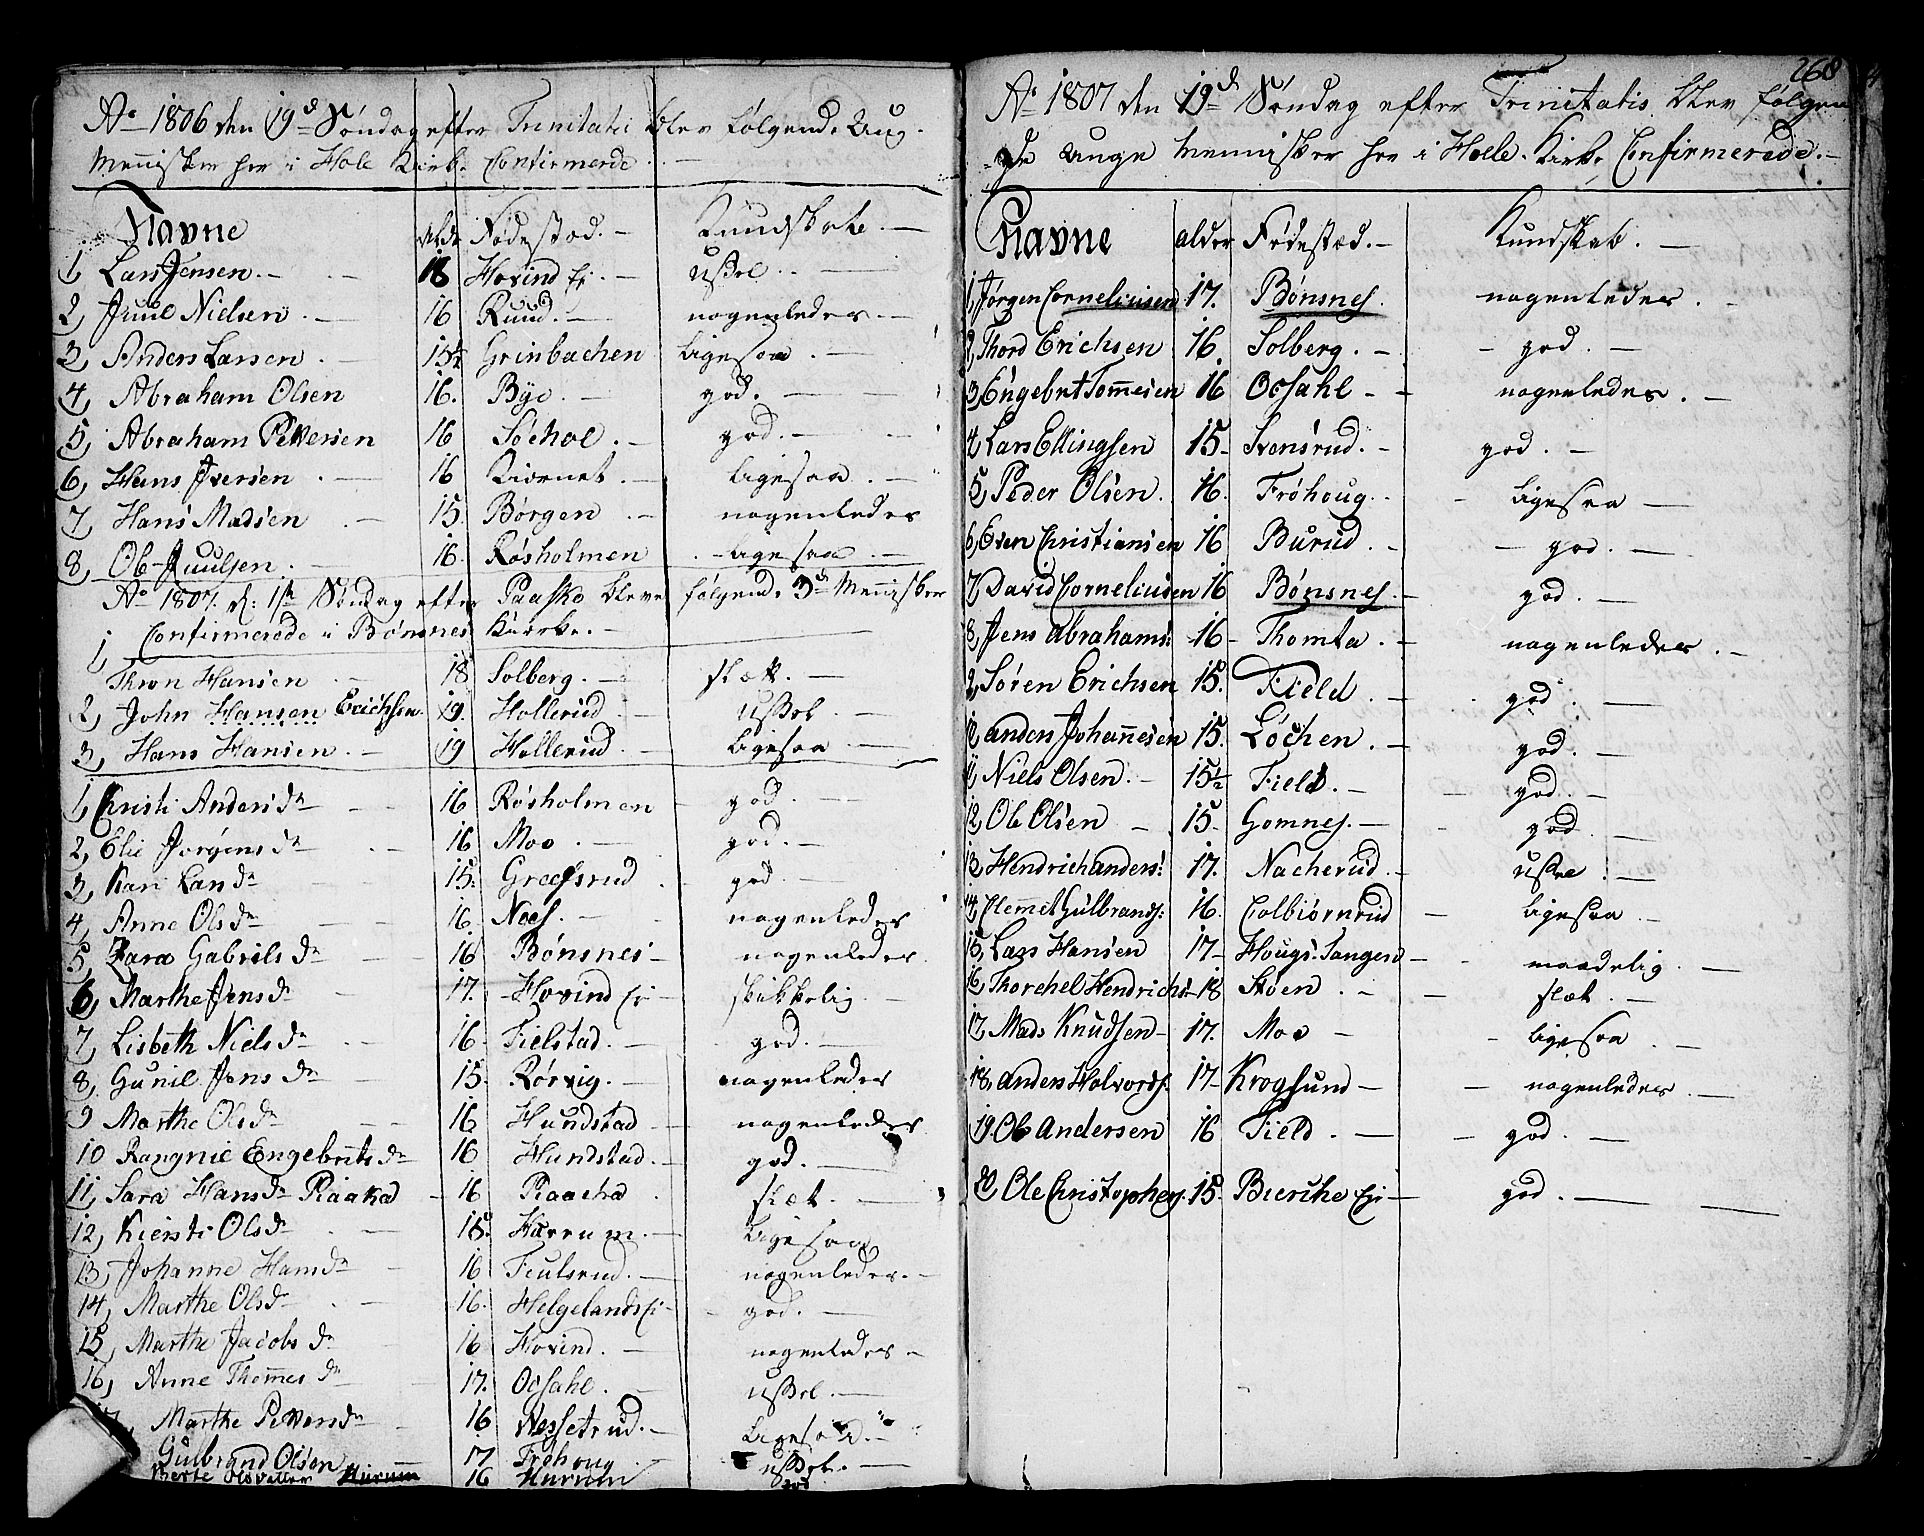 Ao 1806 den 19d Søndag efter Trinitati blev følgende Ung.
Mennisker her i Hole Kirke Confirmerde
Navne Alder Fødestæd. Kundskab.
1, Lars Jensen. 18 Hovind Ei. ussel.
2, Juul Nielsen. 16 Rund. nogenledes.
3, Anders Larsen. 15½ Grinbachen ligesaa.
4, Abraham Olsen 16. Bye. god.
5, Abraham Pettersen 16 Sôehol. god.
6, Hans Iversen 16 ligesaa.
7, Hans Madsen 15. Børgen nogenledes
8, Ole Juulsen. 16. Røsholmen ligesaa.
Ao 1807. d: 1ste Søndag efter Paaske bleve følgende 3de Mennisker
Confirmerede i Bønsnes Kirke.
1, Thron Hansen 18 Solberg. slæt.
2, John Hansen Erichsen 19. Hollerud ussel
3, Hans Hansen. 19 Hollerud. ligesaa
1, Christi Andersdr 16 Røsholmen god.
2, Elie Jørgensdr 16 Moe. god.
3, Kari Larsdr 15. Greefsrud god
4, Anne Olsdr 16. Næs. nogenledes
5, Zara Gabrilsdr 16 Bønsnes nogenledes.
6, Marthe Jensdr 17. Hovind Ei skikkelig.
7, Lisbeth Nielsdr 16. Fielstad. god.
8, Gunil Jensdr 15. Rørvig. nogenledes
9 Marthe Olsdr 16 Hundstad nogenledes
10 Rangnie Engebritsdr 16 Hundstad. god.
11, Sara Hansdr Raaka 16 slæt.
12, Kiersti Olsdr 16. Hærum. ligesaa
13, Johanne Hansdr 16 Feulsrud. nogenledes.
14, Marthe Olsdr 16. Helgelands Ei god.
15, Marthe Jacobsdr 16 Hovind. nogenledes
16, Anne Thomesdr 17. Oesahl. ussel.
17, Marthe Pettersdr 16 Nessetrud. ligesaa.
Gulbrand Olsen 17 Frøhoug ussel.
Berte Olsdatter Hurum 16 Hurum god
268
Ao 1807 den 19d Søndag efter Trinitatis blev følgen
de Unge Mennisker her i Holle Kirke Confirmerede.
Navne alder Fødestæd. Kundskab.
1, Jørgen Corneliusen 17. Bønsnes. nogenledes.
2, Thord Erichsen 16. Solberg. god.
3, Engebret Tommesen 16 Oesahl nogenledes.
4, Lars Ellingsen 15 Svensrud. god.
5, Peder Olsen. 16. Frøhoug. ligesaa
6, Even Christiansen 16 Burud. god.
7, David Corneliusen 16 Bønsnes. god.
8, Jens Abrahams: 16 Thomta. nogenledes.
9, Søren Erichsen 15. Field. god.
10, anders Johannesen 15. Løchen. god.
11, Niels Olsen. 15½ Field. god.
12, Ole Olsen 15. Gomnes. god.
13, Hendrich anders: 17. Nacherud. ussel.
14, Clemmet Gulbrands: 16. Colbiørnrud ligesaa.
15, Lars Hansen 17 Hougs: Tangen maadelig.
16, Thorchel Hendrichs 18 Støen. slæt.
17, Mads Knudsen 17. Moe ligesaa
18, anders Halvords: 17 Krogsund nogenledes.
19. Ole andersen 16 Field. god.
20, Ole Christophers. 15. Bierche Ei god.